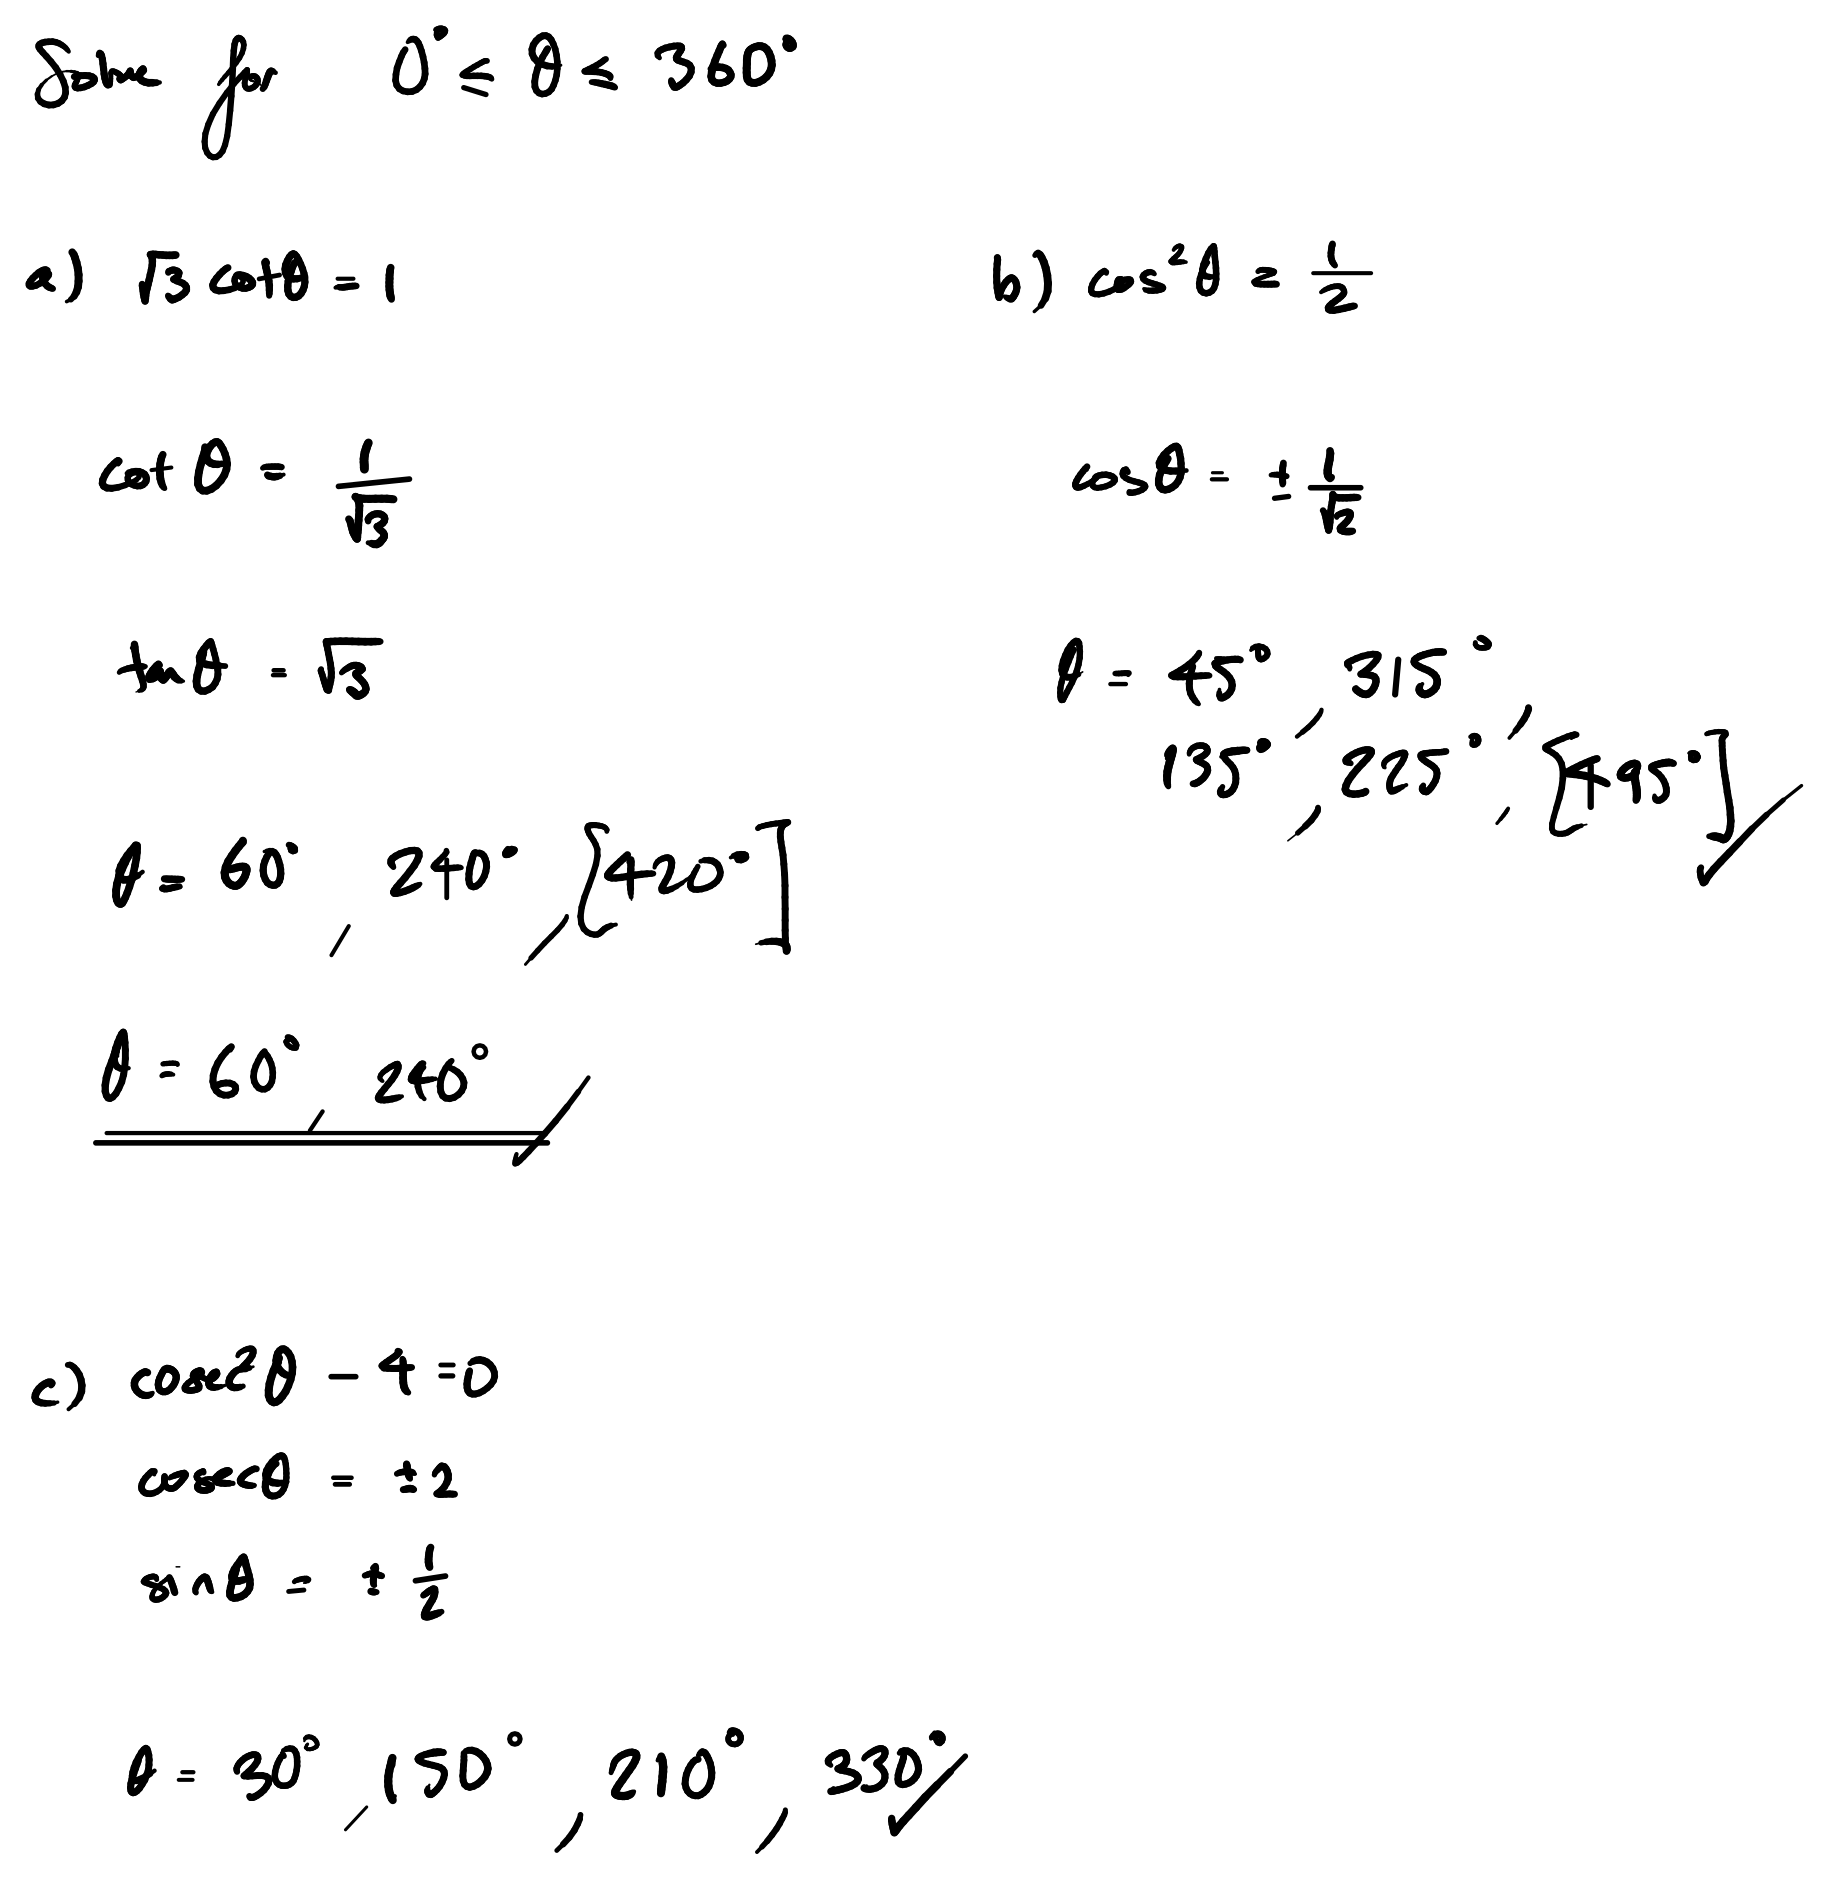 Solve for 0° ≤ θ ≤ 360°
a) √3 cotθ = 1
cot θ = 1/√3
tanθ = √3
θ = 60°, 240°, [420°]
θ = 60°, 240° ✓
b) cos²θ = 1/2
cosθ = ± 1/√2
θ = 45°, 315°,
135°, 225°, [495°] ✓
c) cosec²θ − 4 = 0
cosecθ = ±2
sinθ = ± 1/2
θ = 30°, 150°, 210°, 330° ✓